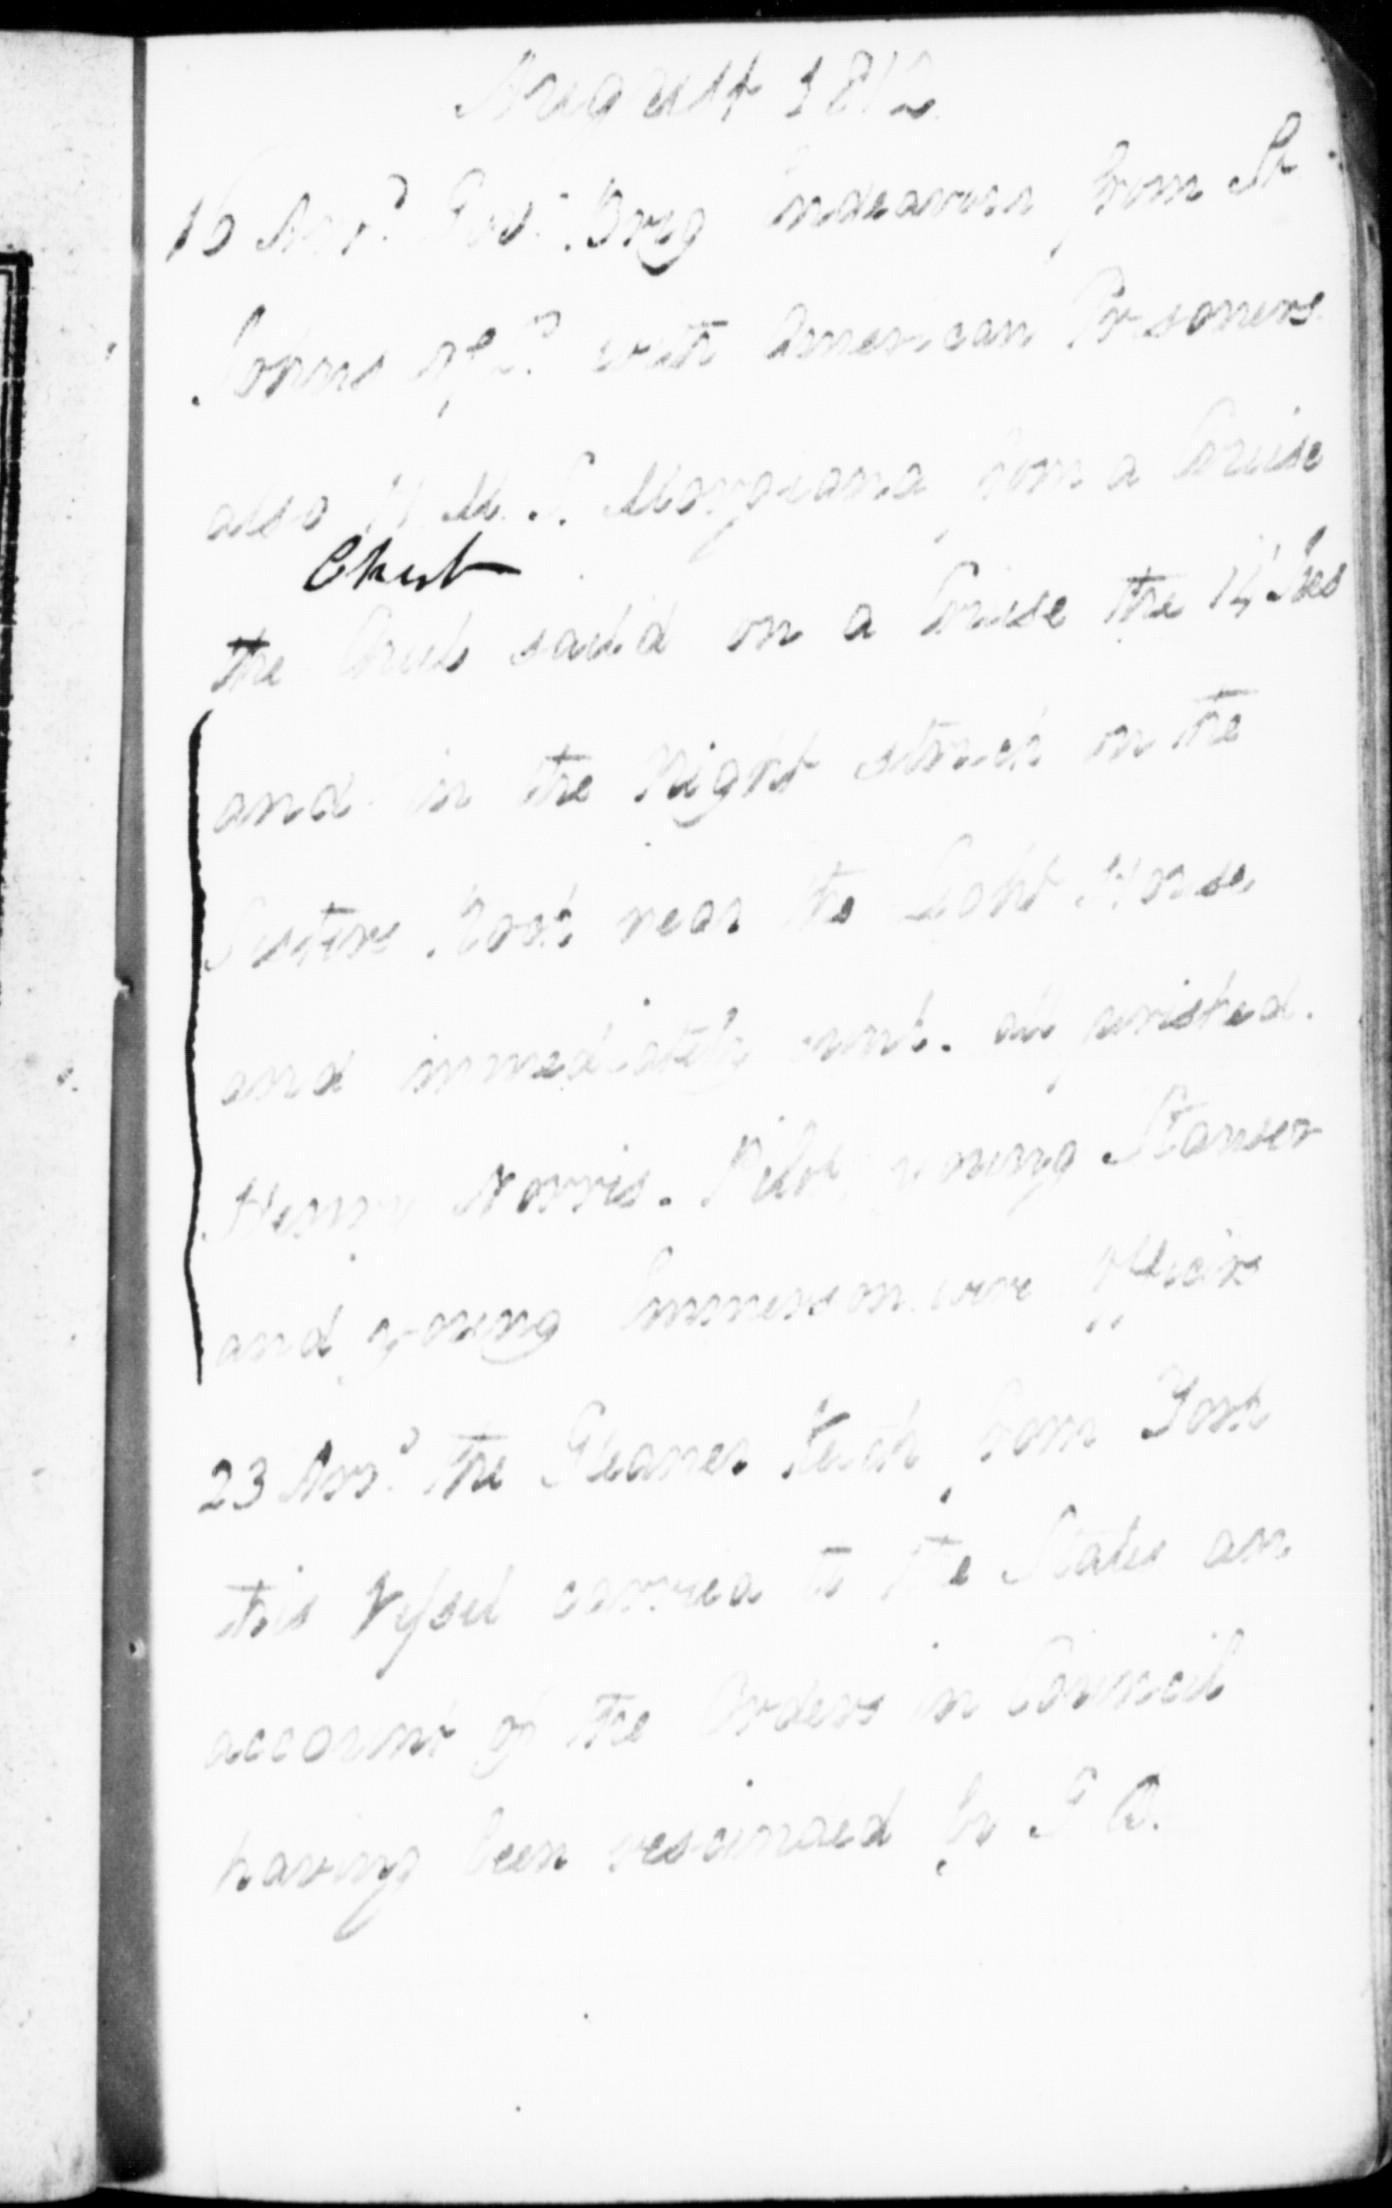 August 1812
16 Arrd. Govt. Brig Endeavour from St
Johns Nfld. with American Prisoners
also H. M. S. Morgeana from a Cruise
Chub
the Chub sail'd on a Cruise the 14 Ins
and in the Night struck on the
Sisters Rock near the Light House
and immediately sunk. all perished.
Henry Norris. Pilot, young Stanser
and young Emmerson were officers
23 Arrd. the Gleaner Ketch from York
this Vessel carried to the States an
account of the Orders in Council
having been rescinded by G B.